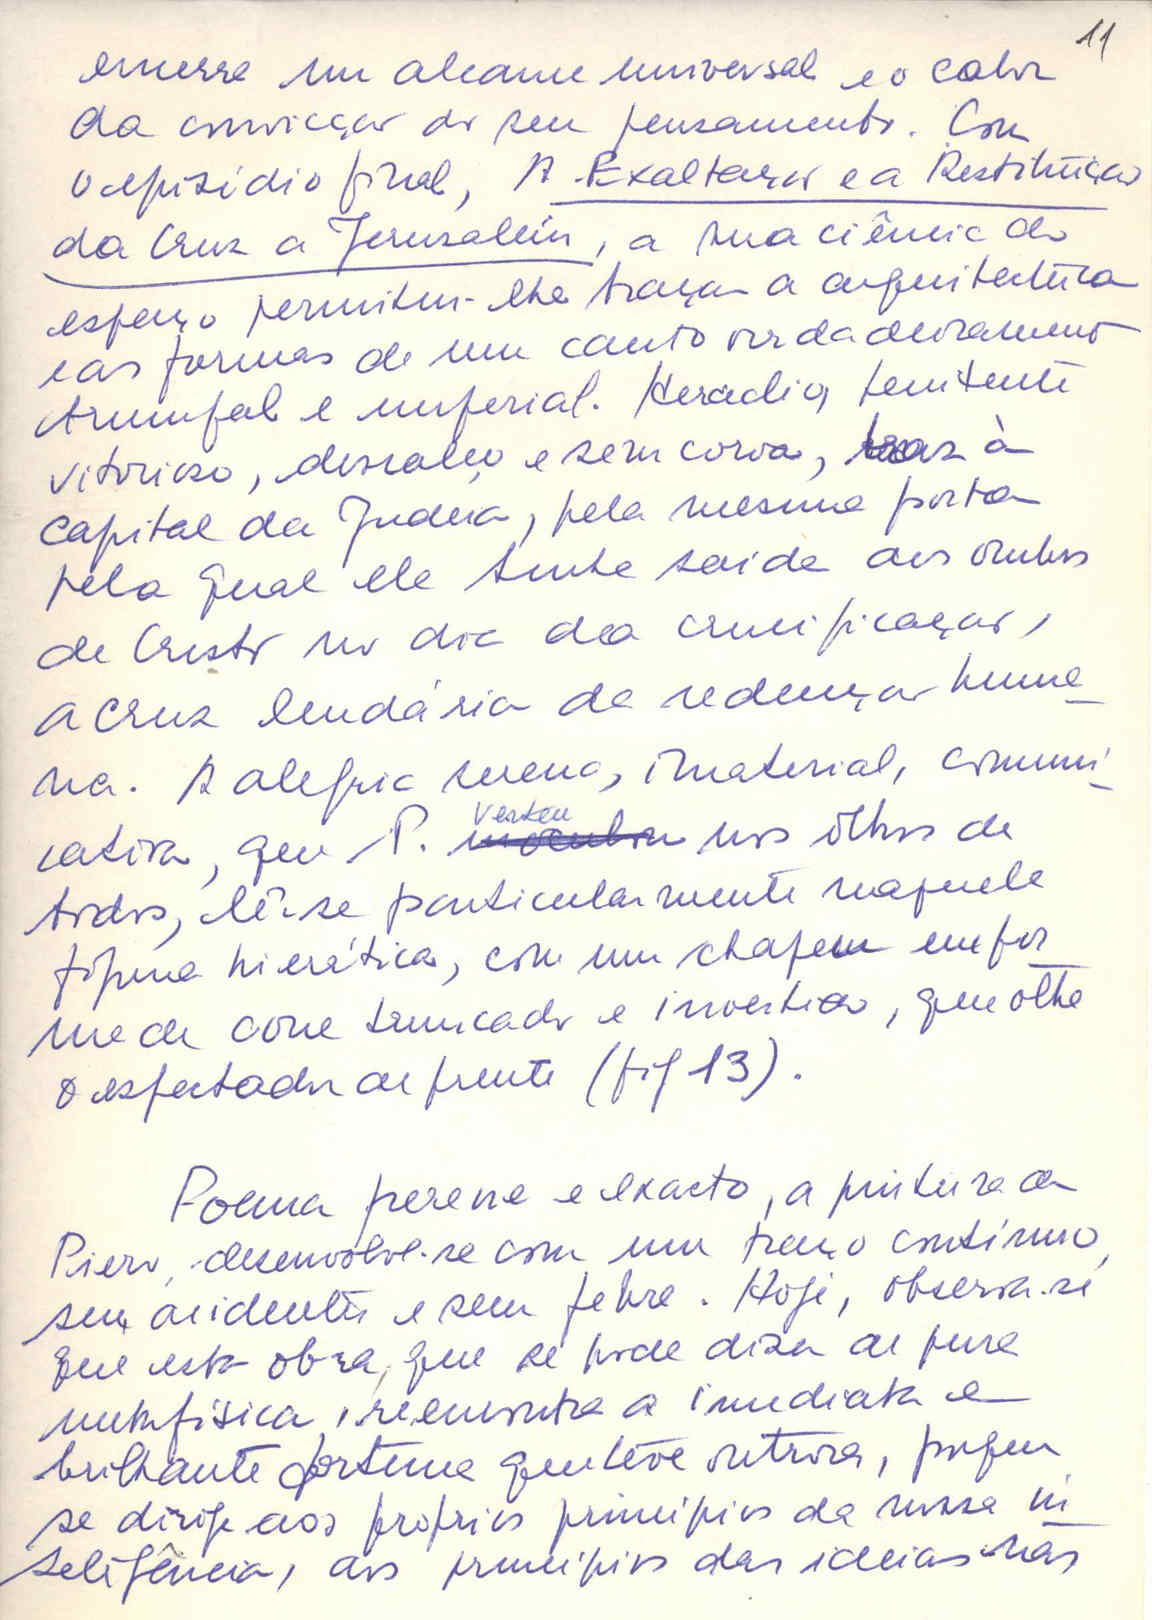 11
emerge um alcance universal e o calor
da convicção do seu pensamento. Com
o episódio final, A Exaltação e a Restituição
da Cruz a Jerusalém, a sua ciência do
espaço permitiu-lhe traçar a arquitectura
e as formas de um canto verdadeiramente
triunfal e imperial. Heraclio, penitente
vitorioso, descalço e sem coroa, traz à
capital da Judeia, pela mesma porta
pela qual ela tinha saido aos ombros
de Cristo no dia da crucificação,
a cruz lendária da redenção huma-
na. A alegria serena, imaterial, comuni-
cativa, que P. verteu nos olhos de
todos, lê-se particularmente naquela
figura hierática, com um chapeu em for-
ma de cone truncado e invertido, que olha
o espectador de frente (fig 13).
Poema perene e exacto, a pintura de
Piero, desenvolve-se com um traço contínuo,
sem acidentes e sem febre. Hoje, observa-se
que esta obra, que se pode dizer de pura
metafísica, reencontra a imediata e
brilhante fortuna que teve outrora, porque
se dirige aos proprios princípios da nossa in-
teligência, aos princípios das ideias nas